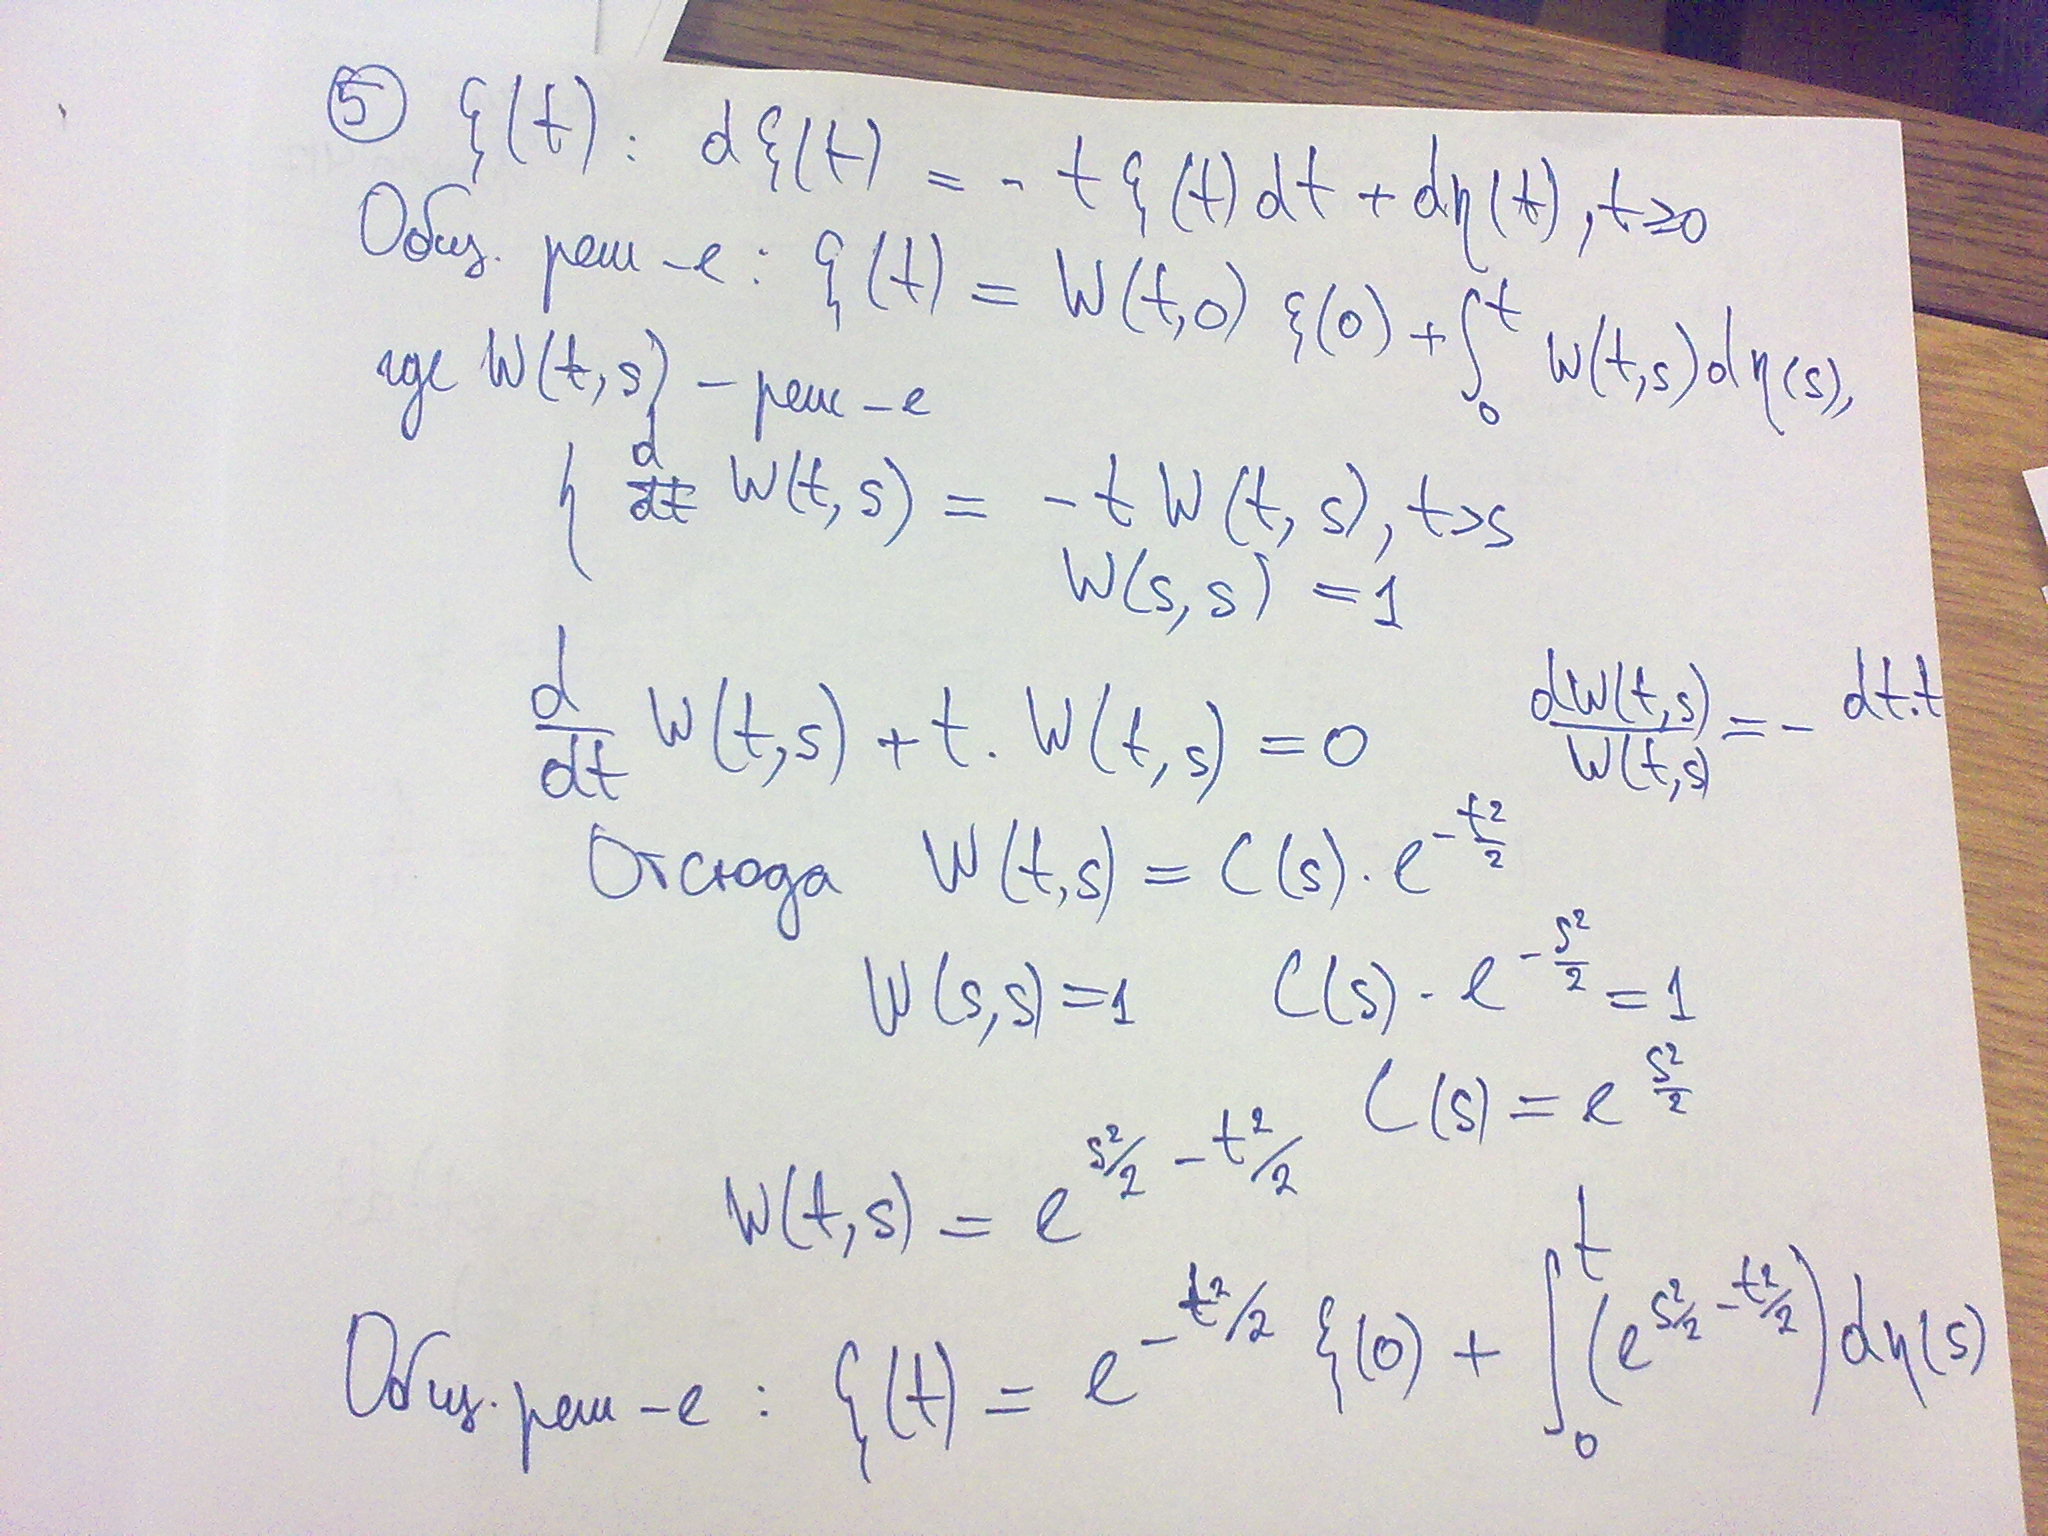 ⑤ ξ(t): dξ(t) = - t ξ(t) dt + dη(t), t≥0
Общ. реш-е: ξ(t) = W(t,0) ξ(0) + ∫₀ᵗ W(t,s) dη(s),
где W(t,s) – реш-е
{ d/dt W(t,s) = -t W(t,s), t>s
W(s,s) = 1
d/dt W(t,s) + t · W(t,s) = 0 dW(t,s)/W(t,s) = - dt·t
Отсюда W(t,s) = C(s) · e^(-t²/2)
W(s,s) = 1 C(s) · e^(-s²/2) = 1
C(s) = e^(s²/2)
W(t,s) = e^(s²/2 - t²/2)
Общ. реш-е: ξ(t) = e^(-t²/2) ξ(0) + ∫₀ᵗ (e^(s²/2 - t²/2)) dη(s)